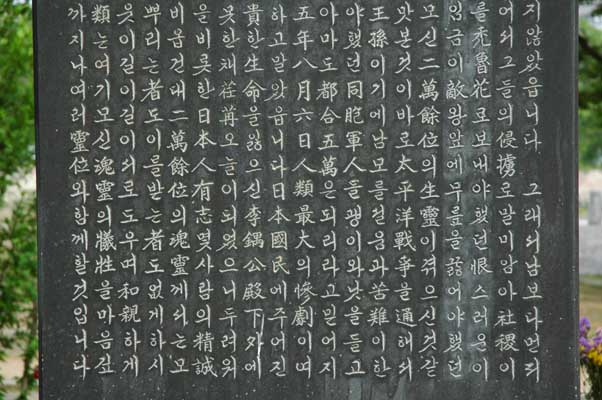 지않았읍니다 그래서남보다먼저
어서그들의侵擄로말미암아社稷이
를禿魯花로보내야했던恨스러운이
임금이敵王앞에무릎을꿇어야했던
모신二萬餘位의生靈이겪으신것같
맛본것이바로太平洋戰爭을通해서
王孫이기에남모를설움과苦難이한
야했던同胞軍人들괭이와낫을들고
아마도都合五萬은되리라고믿어지
五年八月六日人類最大의慘劇이여
하고말았읍니다日本國民에주어진
貴한生命을잃으신李鍝公殿下外에
못한채荏苒오늘이되었으니두려워
을비롯한日本人有志몇사람의精誠
비옵건대二萬餘位의魂靈께서는모
뿌리는者도이를받는者도없게하시
웃이길이길이서로도우며和親하게
類는여기모신魂靈의犧牲을마음깊
까지나여러靈位와함께할것입니다